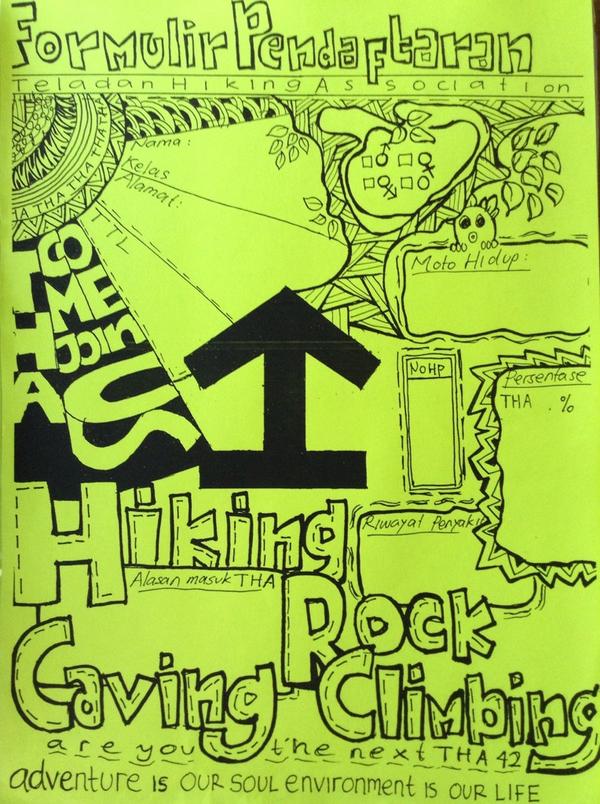 Formulir Pendaftaran
Teladan Hiking Association
THA THA THA THA
Nama:
Kelas
Alamat:
TTL
Moto Hidup:
COME
Join
US
THA
No HP
Persentase
THA . %
Hiking
Riwayat Penyaki
Alasan masuk THA
Rock
Caving Climbing
are you the next THA 42
adventure IS OUR SOUL environment IS OUR LIFE